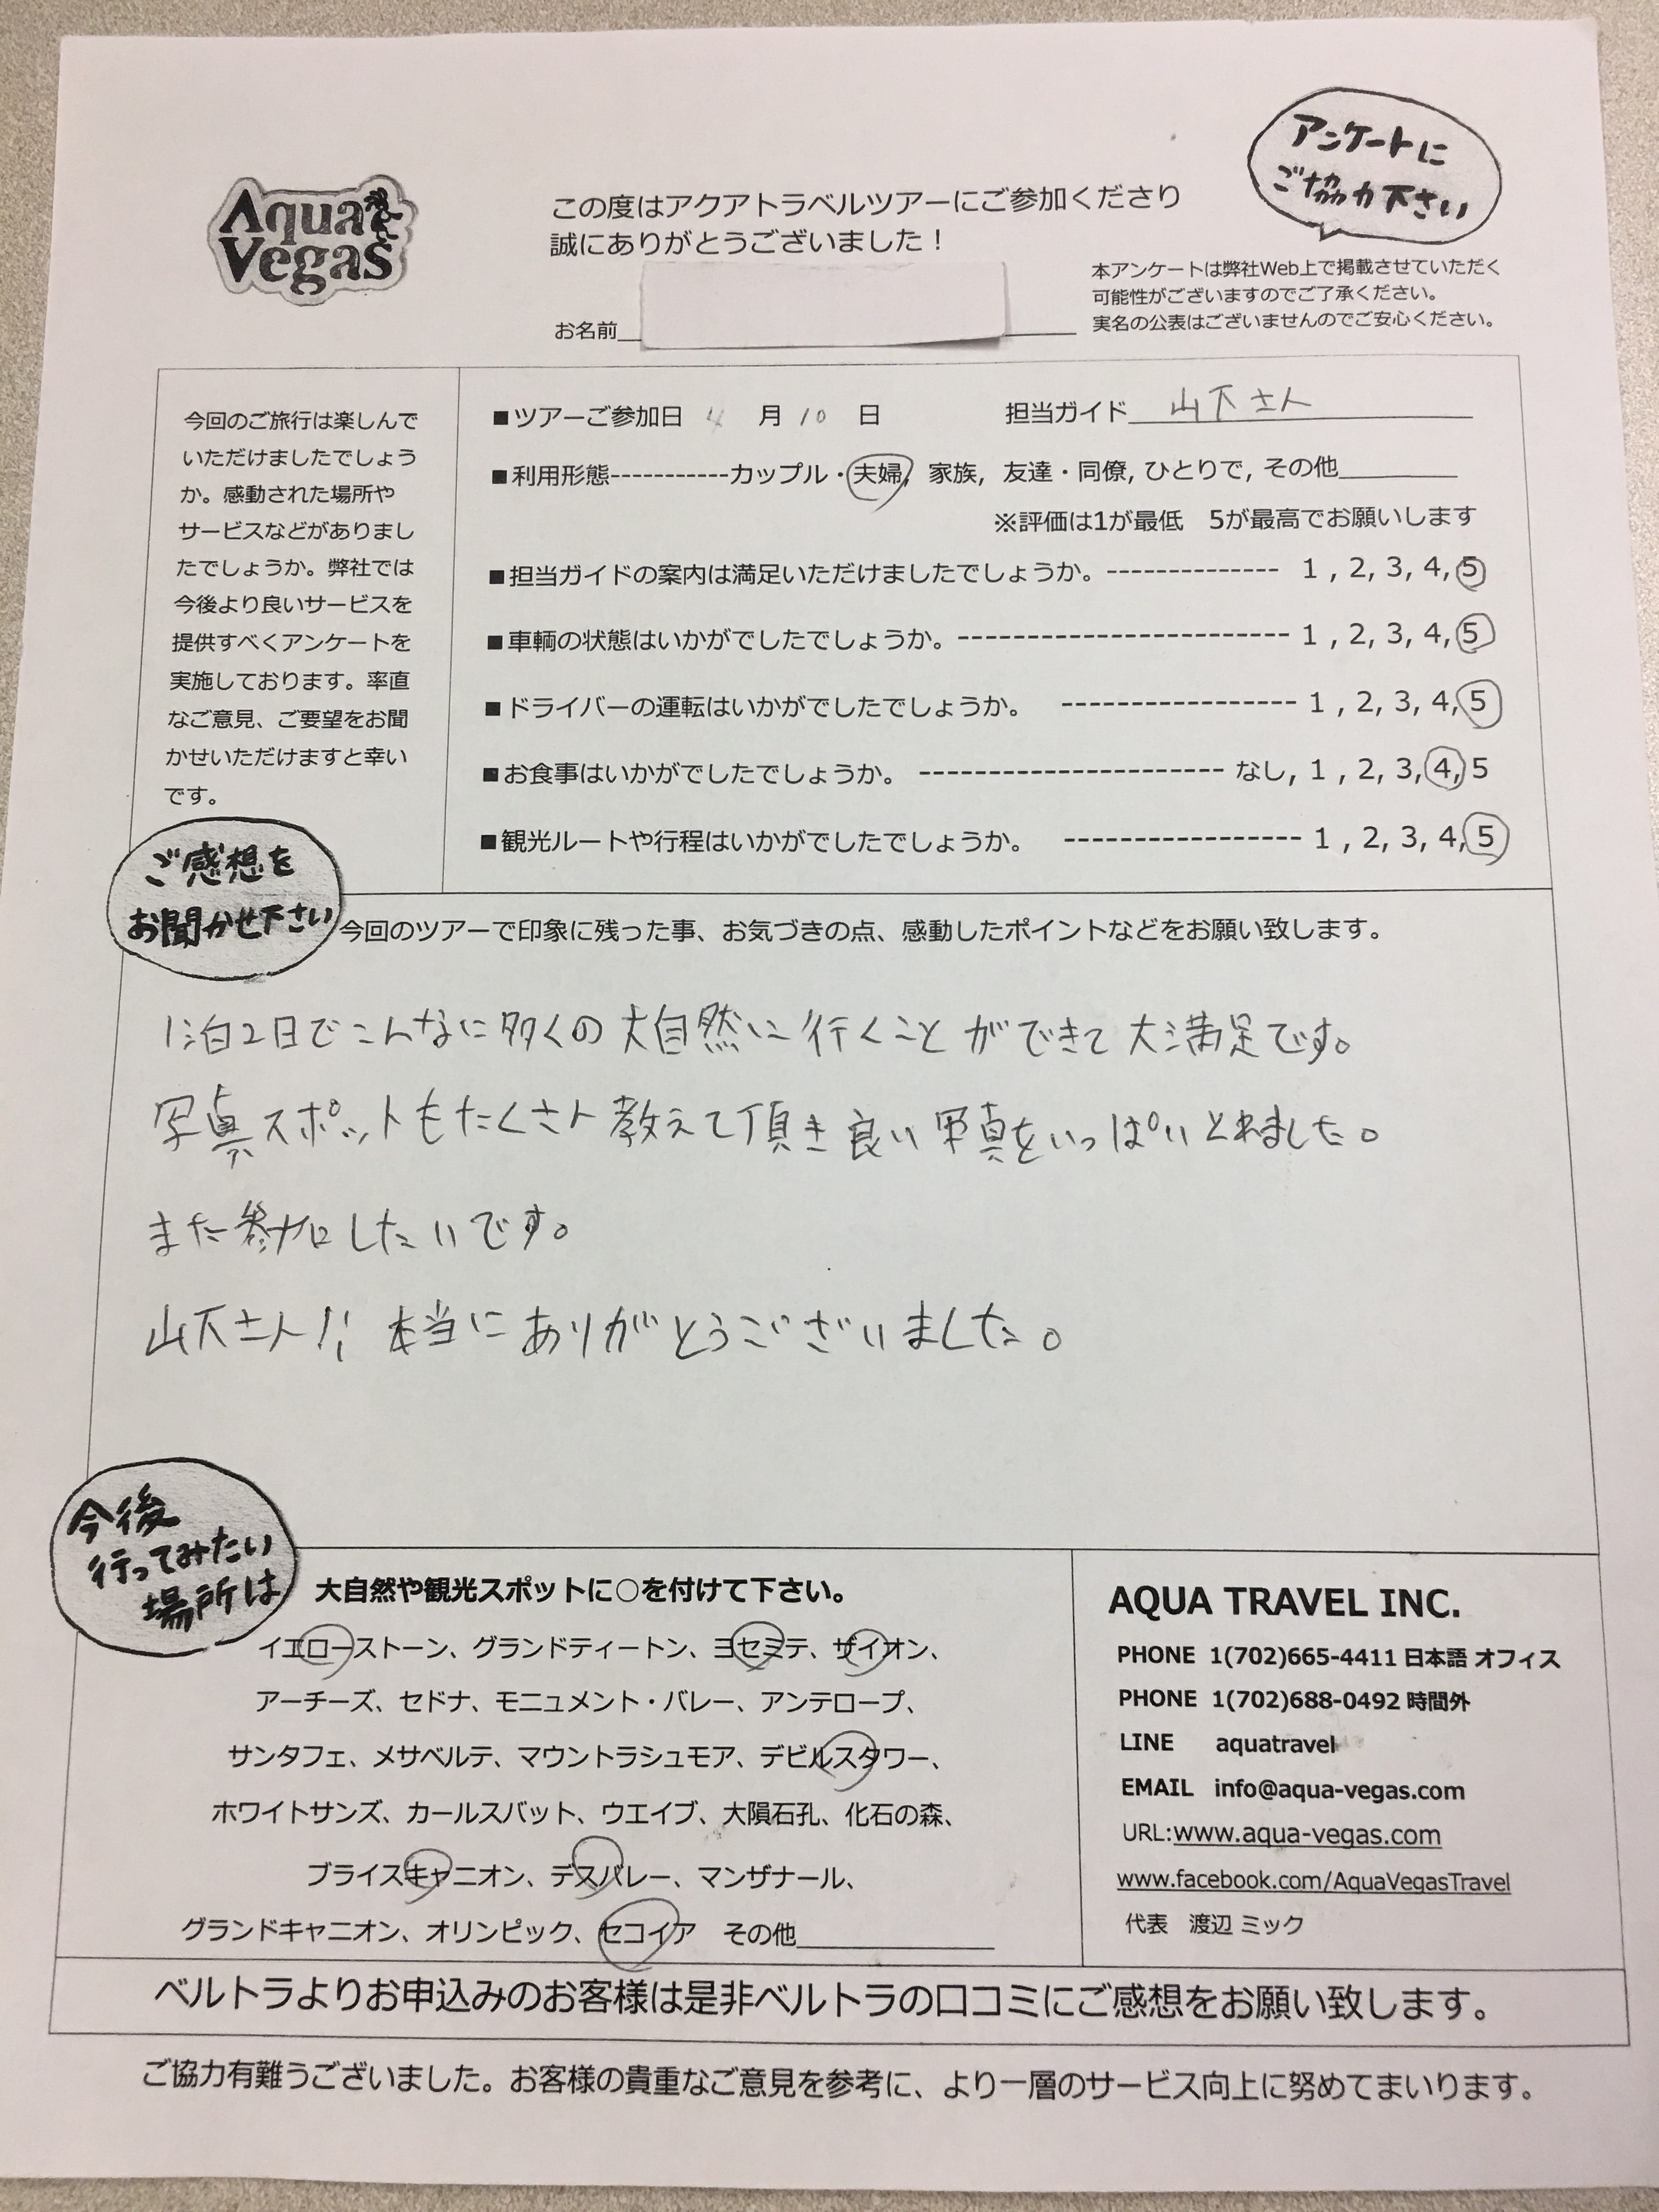 Aqua
Vegas
この度はアクアトラベルツアーにご参加くださり
誠にありがとうございました！
アンケートに
ご協力下さい
本アンケートは弊社Web上で掲載させていただく
可能性がございますのでご了承ください。
実名の公表はございませんのでご安心ください。
お名前
今回のご旅行は楽しんで
いただけましたでしょう
か。感動された場所や
サービスなどがありまし
たでしょうか。弊社では
今後より良いサービスを
提供すべくアンケートを
実施しております。率直
なご意見、ご要望をお聞
かせいただけますと幸い
です。
■ツアーご参加日 4 月 10 日 担当ガイド 山下さん
■利用形態-----------カップル・夫婦, 家族, 友達・同僚, ひとりで, その他
※評価は1が最低 5が最高でお願いします
■担当ガイドの案内は満足いただけましたでしょうか。-------------- 1 , 2, 3, 4, 5
■車輌の状態はいかがでしたでしょうか。--------------------------- 1 , 2, 3, 4, 5
■ドライバーの運転はいかがでしたでしょうか。 ------------------ 1 , 2, 3, 4, 5
■お食事はいかがでしたでしょうか。------------------------ なし, 1 , 2, 3, 4, 5
■観光ルートや行程はいかがでしたでしょうか。 ------------------ 1 , 2, 3, 4, 5
ご感想を
お聞かせ下さい
今回のツアーで印象に残った事、お気づきの点、感動したポイントなどをお願い致します。
1泊2日でこんなに多くの大自然に行くことができて大満足です。
写真スポットもたくさん教えて頂き良い写真をいっぱいとれました。
また参加したいです。
山下さん!! 本当にありがとうございました。
今後
行ってみたい
場所は
大自然や観光スポットに○を付けて下さい。
イエローストーン、グランドティートン、ヨセミテ、ザイオン、
アーチーズ、セドナ、モニュメント・バレー、アンテロープ、
サンタフェ、メサベルテ、マウントラシュモア、デビルスタワー、
ホワイトサンズ、カールスバット、ウエイブ、大隕石孔、化石の森、
ブライスキャニオン、デスバレー、マンザナール、
グランドキャニオン、オリンピック、セコイア その他
AQUA TRAVEL INC.
PHONE 1(702)665-4411 日本語 オフィス
PHONE 1(702)688-0492 時間外
LINE aquatravel
EMAIL info@aqua-vegas.com
URL:www.aqua-vegas.com
www.facebook.com/AquaVegasTravel
代表 渡辺 ミック
ベルトラよりお申込みのお客様は是非ベルトラの口コミにご感想をお願い致します。
ご協力有難うございました。お客様の貴重なご意見を参考に、より一層のサービス向上に努めてまいります。